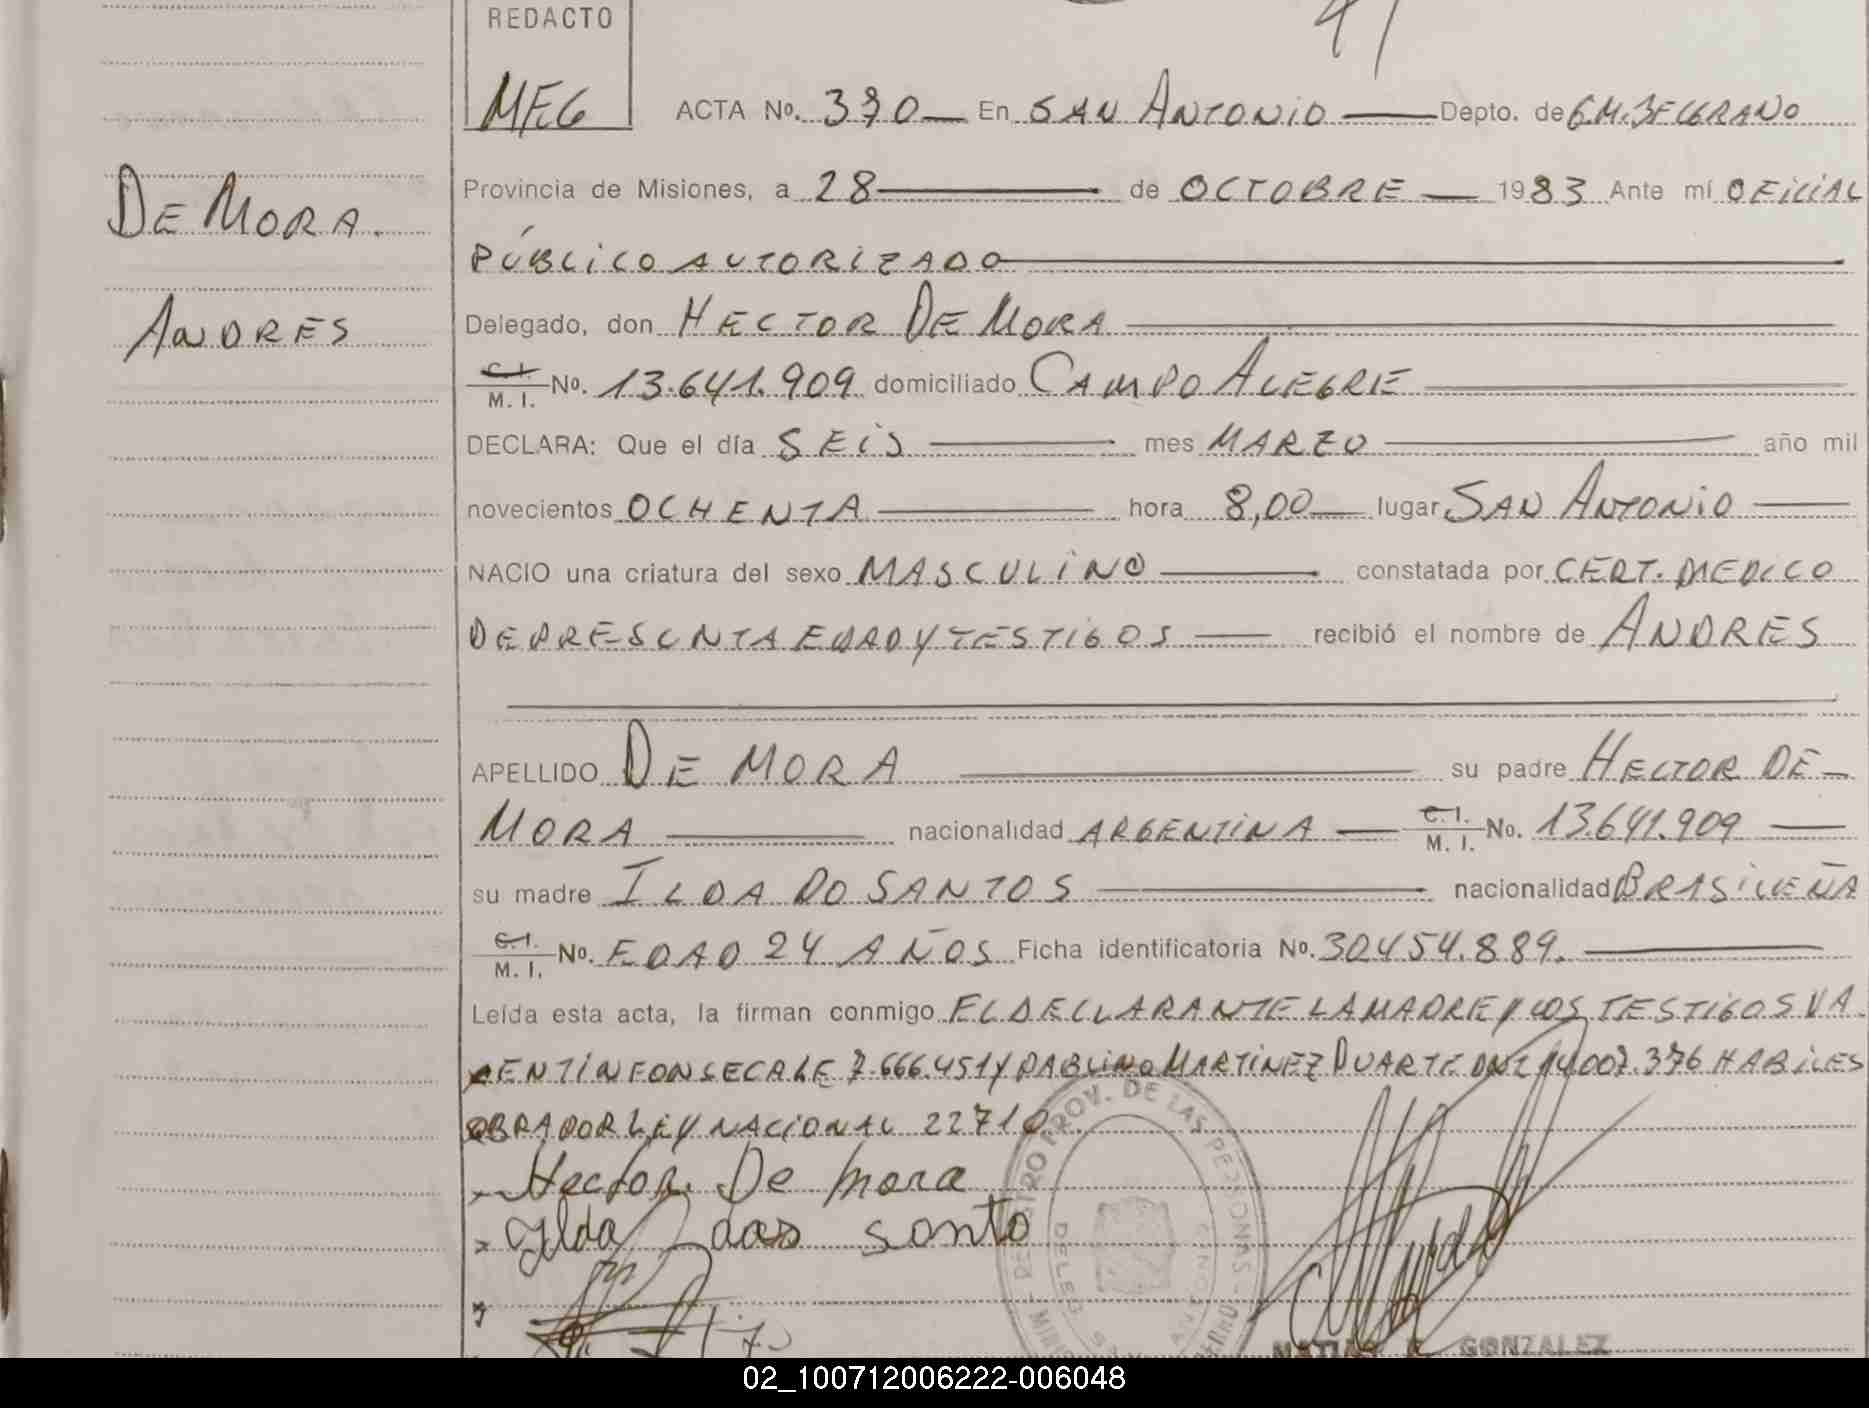 REDACTO
MEG
ACTA No. 370 En SAN ANTONIO Depto. de G.M. BELGRANO
Provincia de Misiones, a 28 de OCTOBRE 1983 Ante mí OFICIAL
PÚBLICO AUTORIZADO
DE MORA.
ANDRES
Delegado, don HECTOR DE MORA
C.I. M. I. No. 13.641.909 domiciliado CAMPO ALEGRE
DECLARA: Que el día SEIS mes MARZO año mil
novecientos OCHENTA hora 8,00 lugar SAN ANTONIO
NACIO una criatura del sexo MASCULINO constatada por CERT. MEDICO
DE PRESUNTA EDAD Y TESTIGOS recibió el nombre de ANDRES
APELLIDO DE MORA su padre HECTOR DE
MORA nacionalidad ARGENTINA C.I. M. I. No. 13.641.909
su madre ILDA DO SANTOS nacionalidad BRASILEÑA
C.I. M. I. No. EDAD 24 AÑOS Ficha identificatoria No. 30454.889.
Leída esta acta, la firman conmigo EL DECLARANTE LA MADRE Y LOS TESTIGOS VA
LENTIN FONSECA LE 7.666.451 Y PABLINO MARTINEZ DUARTE DNI 14.007.376 HABILES
OBRA POR LEY NACIONAL 22710
Hector De mora
Ylda dos santo
PROV. DE LAS PERSONAS
GONZALEZ
02_100712006222-006048